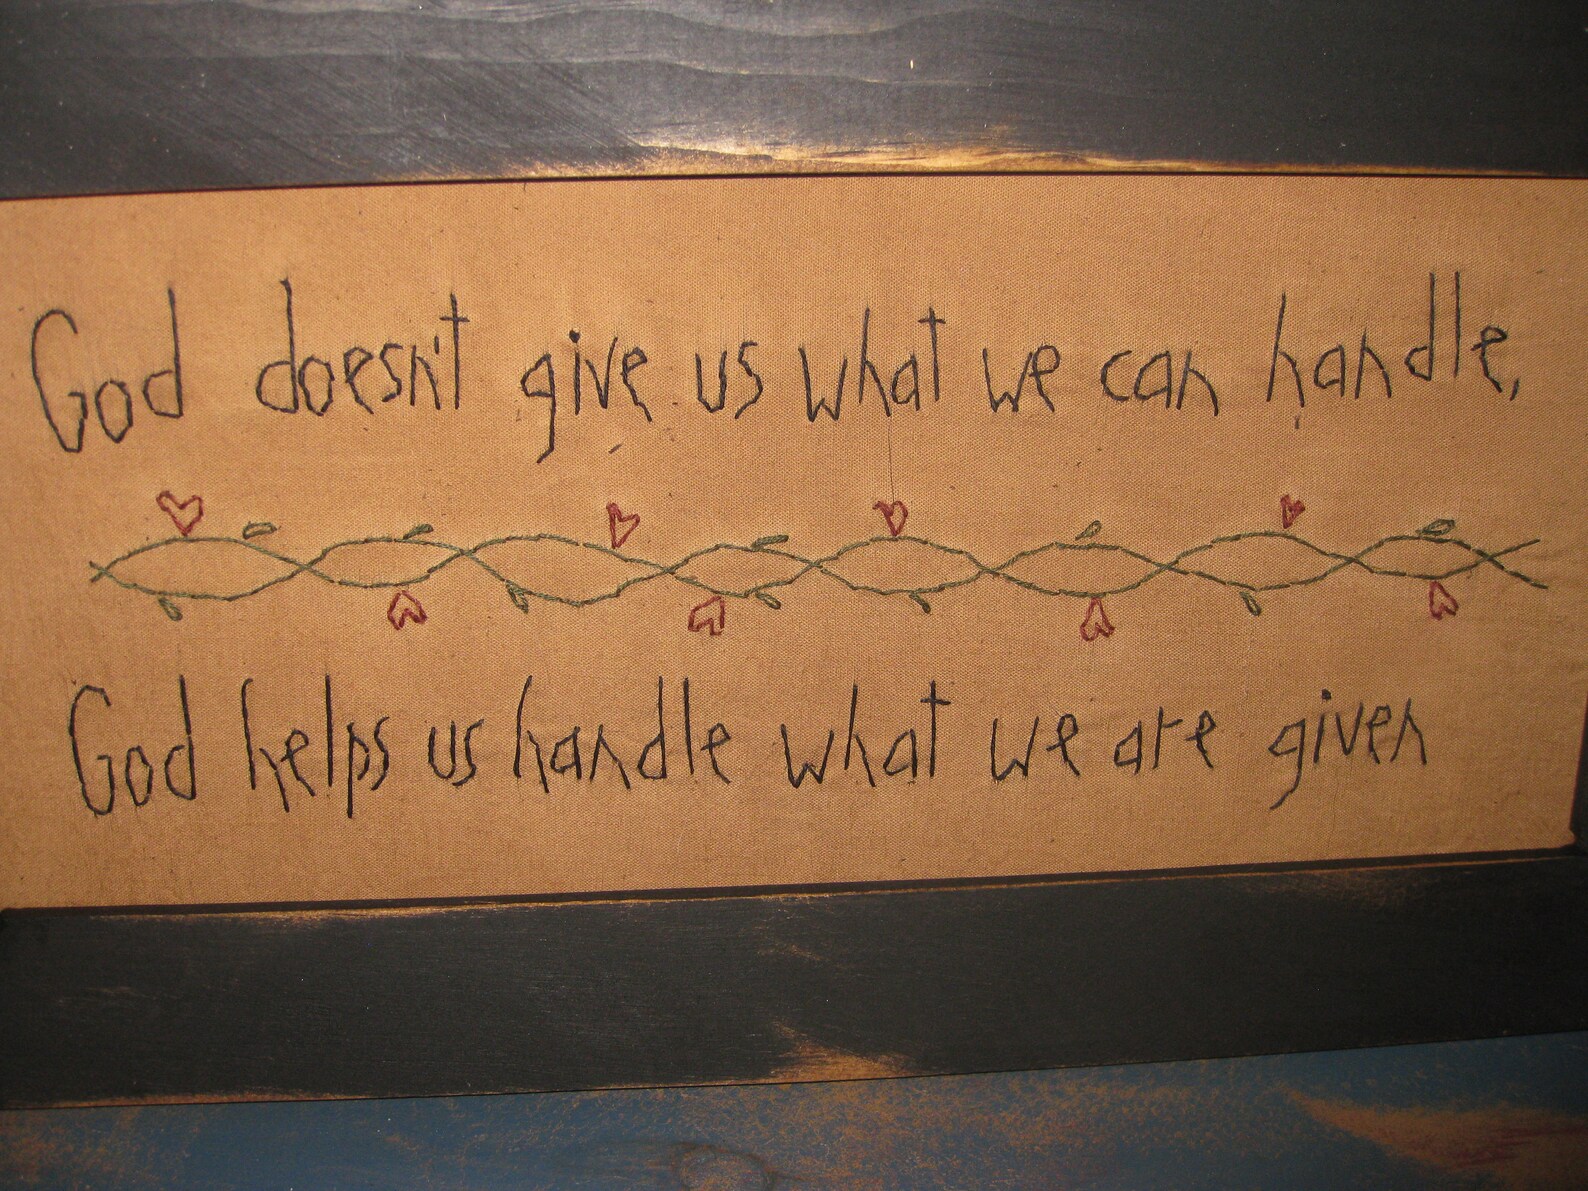 God doesn't give us what we can handle,
God helps us handle what we are given